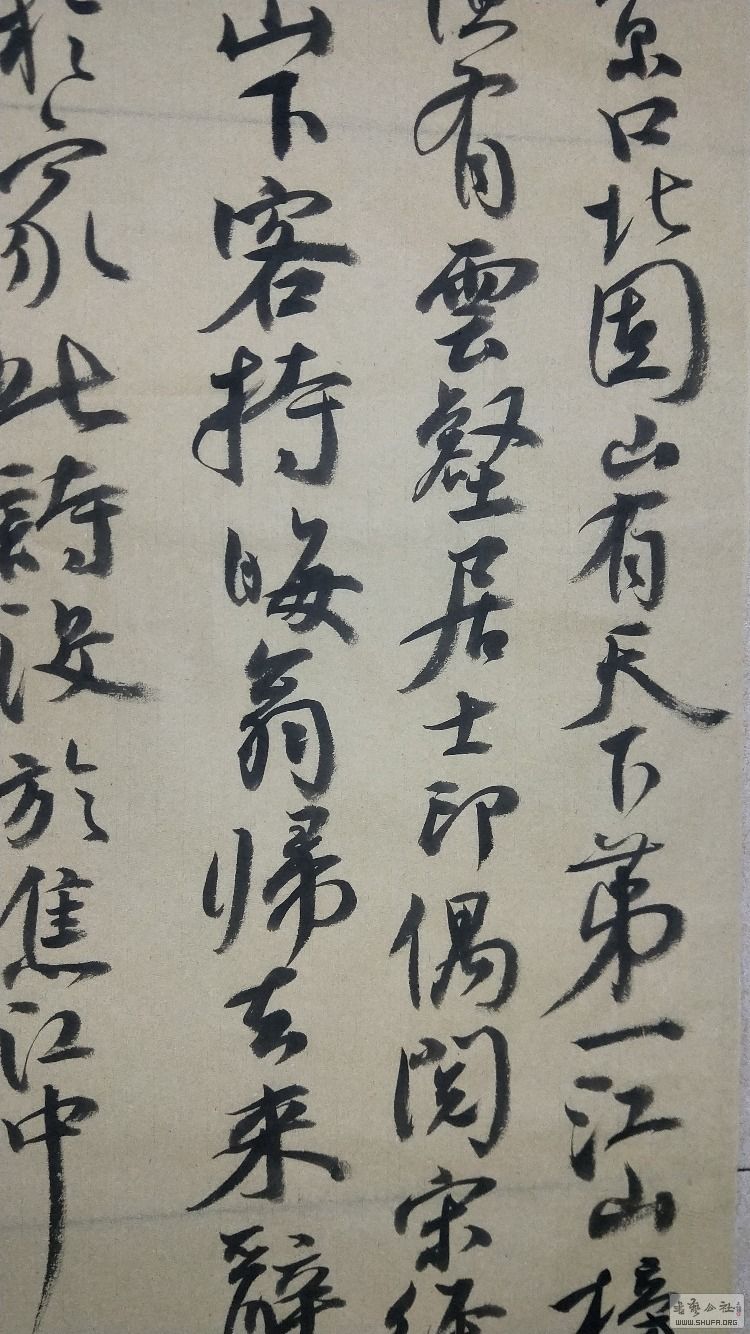 京口北固山有天下第一江山
有雲壑居士印偶閱宋
山下客持晦翁歸去來辭
於家此詩没於焦江中
书艺公社
WWW.SHUFA.ORG